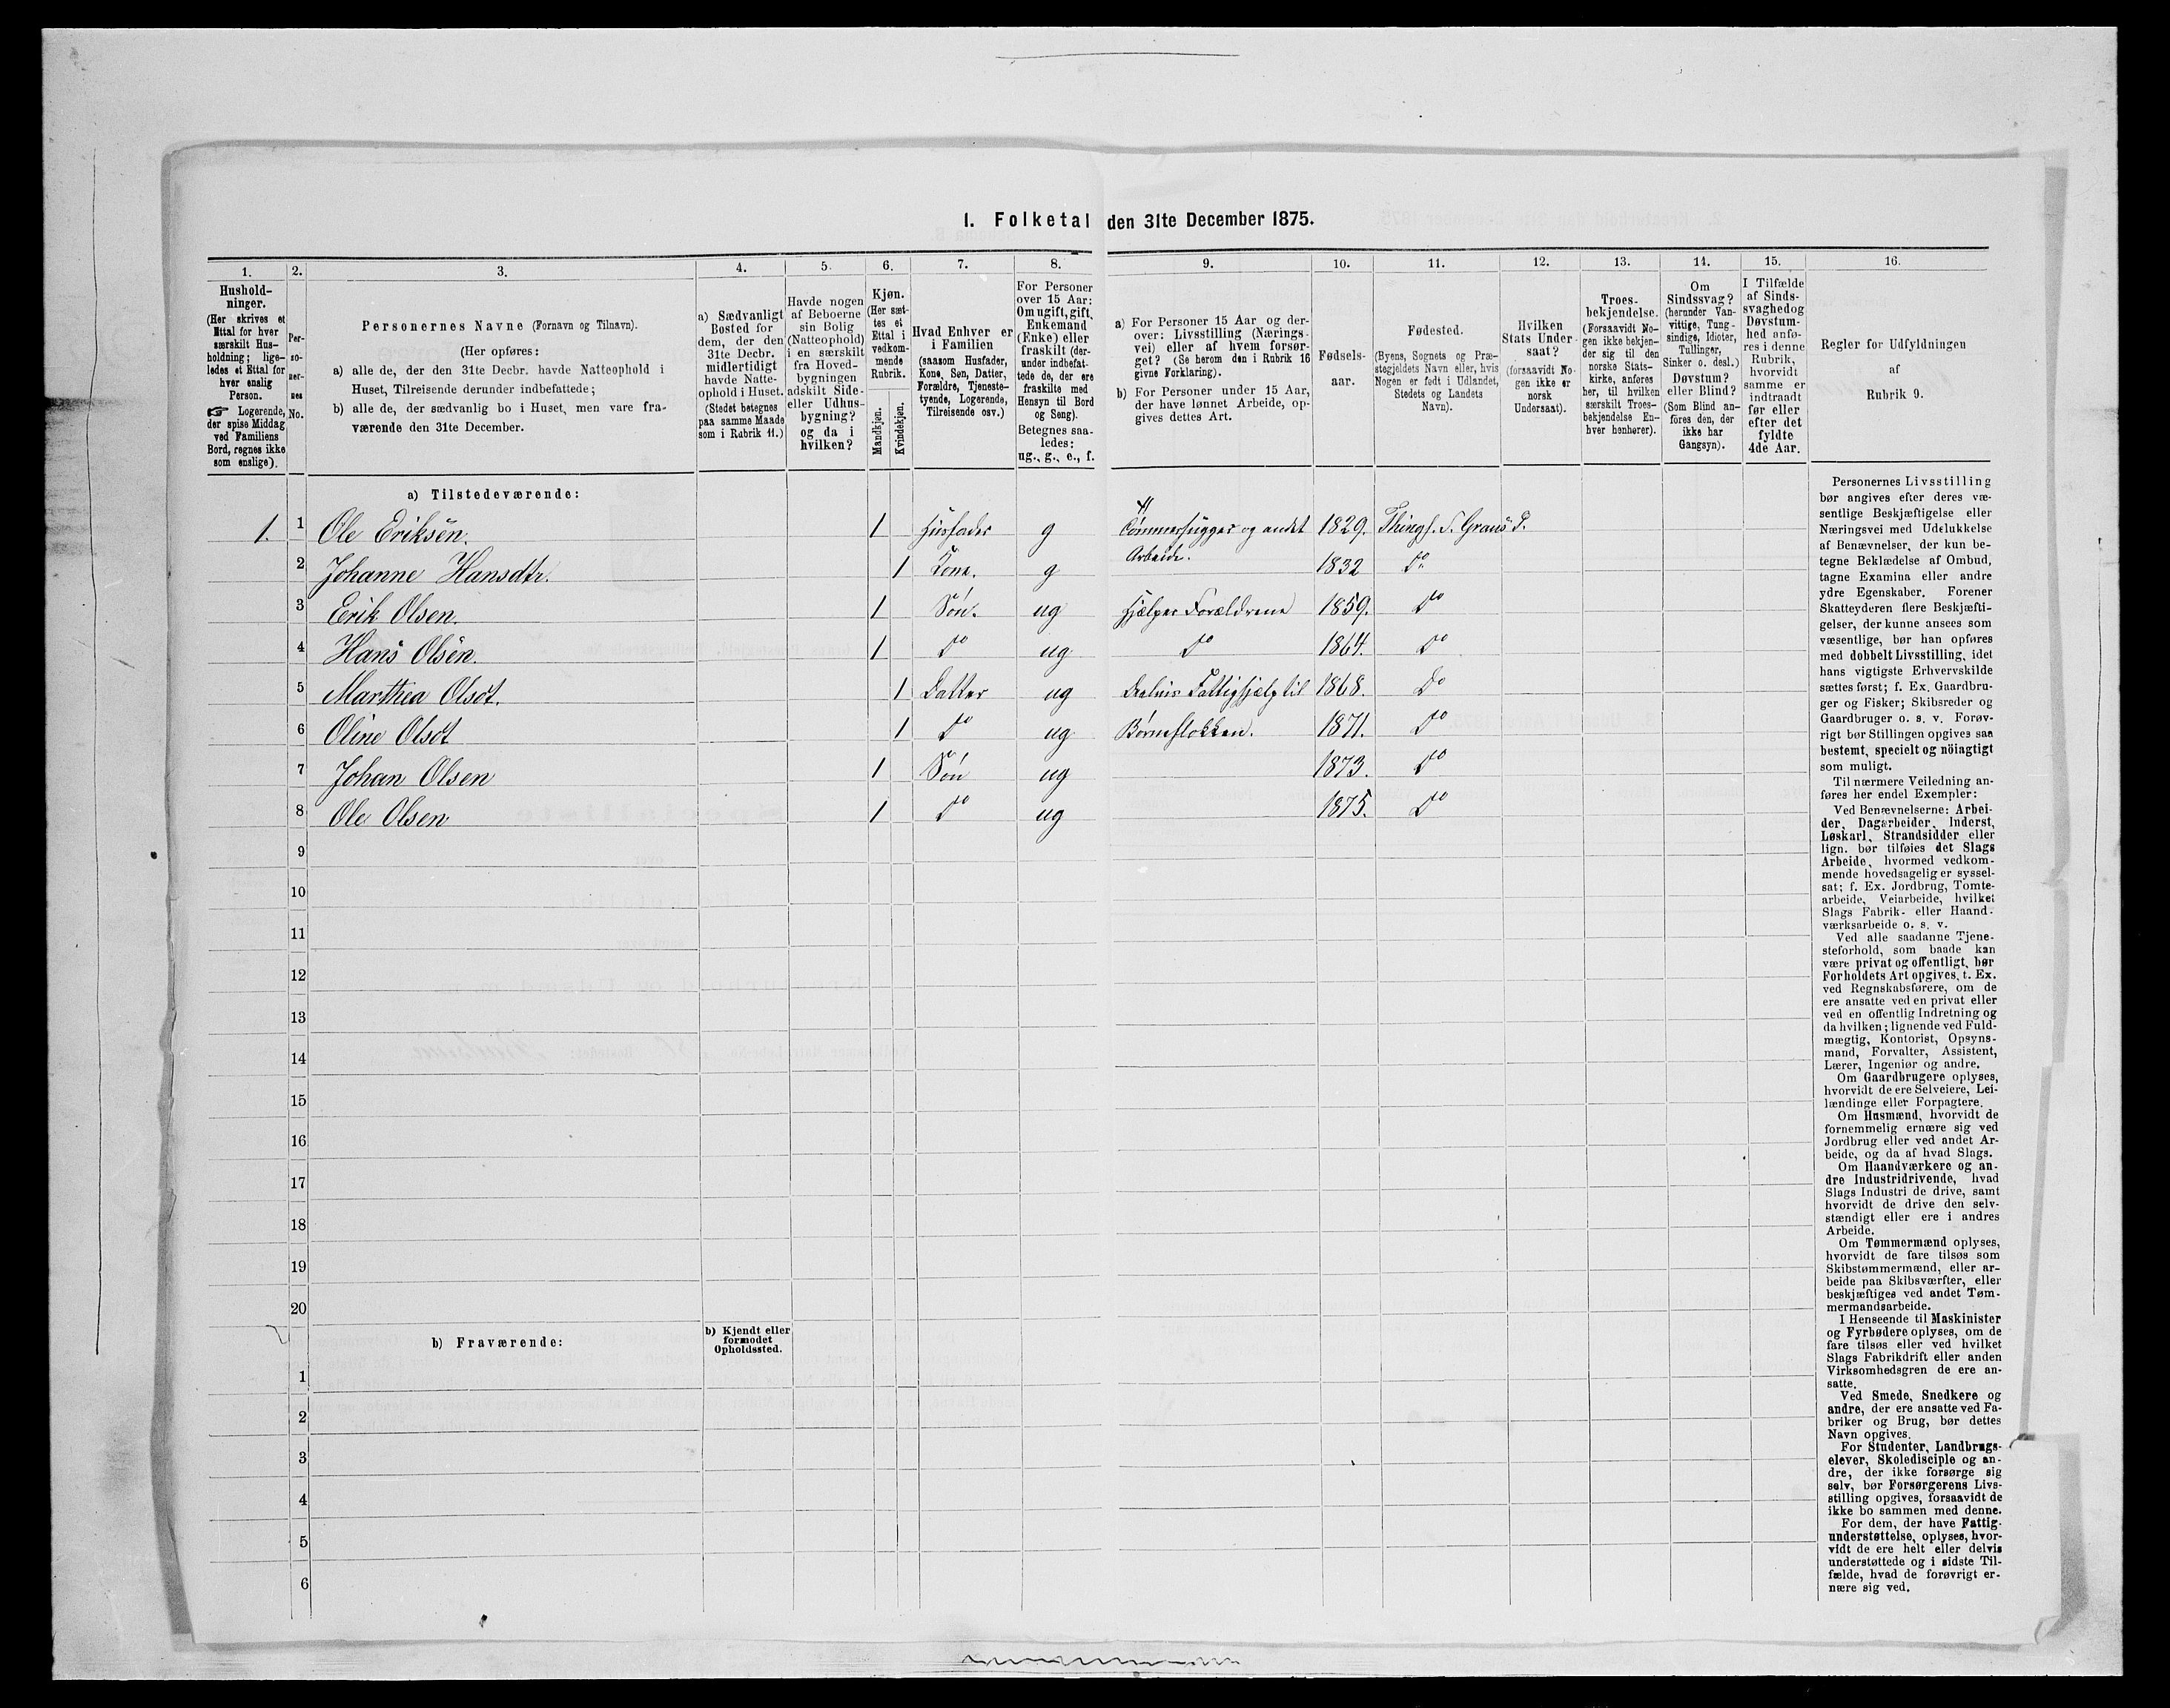 1. Folketal den 31te December 1875.
1. 2. 3. 4. 5. 6. 7. 8. 9. 10. 11. 12. 13. 14. 15. 16.
Hushold-
ninger.
(Her skrives et
Ettal for hver
særskilt Hus-
holdning; lige-
ledes et Ettal for
hver enslig
Person.
☞ Logerende,
der spise Middag
ved Familiens
Bord, regnes ikke
som enslige).
Per-
so-
ner-
nes
No.
Personernes Navne (Fornavn og Tilnavn).
(Her opføres:
a) alle de, der den 31te Decbr. havde Natteophold i
Huset, Tilreisende derunder indbefattede;
b) alle de, der sædvanlig bo i Huset, men vare fra-
værende den 31te December.
a) Sædvanligt
Bosted for
dem, der den
31te Decbr.
midlertidigt
havde Natte-
ophold i Huset.
(Stedet betegnes
paa samme Maade
som i Rubrik 11.)
Havde nogen
af Beboerne
sin Bolig
(Natteophold)
i en særskilt
fra Hoved-
bygningen
adskilt Side-
eller Udhus-
bygning?
og da i
hvilken?
Kjøn.
(Her sæt-
tes et
Ettal i
vedkom-
mende
Rubrik.
Mandkjøn.
Kvindekjøn.
Hvad Enhver er
i Familien
(saasom Husfader,
Kone, Søn, Datter,
Forældre, Tjeneste-
tyende, Logerende,
Tilreisende osv.)
For Personer
over 15 Aar:
Om ugift, gift,
Enkemand
(Enke) eller
fraskilt (der-
under indbefat-
tede de, der ere
fraskilte med
Hensyn til Bord
og Seng).
Betegnes saa-
ledes:
ug., g., e., f.
a) For Personer 15 Aar og der-
over: Livsstilling (Nærings-
vei) eller af hvem forsør-
get? (Se herom den i Rubrik 16
givne Forklaring).
b) For Personer under 15 Aar,
der have lønnet Arbeide, op-
gives dettes Art.
Fødsels-
aar.
Fødested.
(Byens, Sognets og Præ-
stegjeldets Navn eller, hvis
Nogen er født i Udlandet,
Stedets og Landets
Navn).
Hvilken
Stats Under-
saat?
(forsaavidt No-
gen ikke er
norsk
Undersaat).
Troes-
bekjendelse.
(Forsaavidt No-
gen ikke bekjen-
der sig til den
norske Stats-
kirke, anføres
her, til hvilken
særskilt Troes-
bekjendelse En-
hver henhører).
Om
Sindssvag?
(herunder Van-
vittige, Tung-
sindige, Idioter,
Tullinger,
Sinker o. desl.)
Døvstum?
eller Blind?
(Som Blind an-
föres den, der
ikke har
Gangsyn).
I Tilfælde
af Sinds-
svaghed og
Døvstum-
hed anfø-
res i denne
Rubrik,
hvorvidt
samme er
indtraadt
før eller
efter det
fyldte
4de Aar.
Regler for Udfyldningen
af
Rubrik 9.
a) Tilstedeværende:
1. 1 Ole Eriksen. 1 Husfader g Tømmerhugger og andet Arbeide. 1829. Thingl. S. Grans P.
2 Johanne Hansdtr. 1 Kone. g 1832 Do
3 Erik Olsen. 1 Søn. ug Hjælper Forældrene 1859. Do
4 Hans Olsen. 1 Do ug Do 1864. Do
5 Marthea Olsdt. 1 Datter ug Delvis Fattighjælp til 1868. Do
6 Oline Olsdt 1 Do ug Børneflokken. 1871. Do
7 Johan Olsen 1 Søn ug 1873. Do
8 Ole Olsen 1 Do ug 1875. Do
9
10
11
12
13
14
15
16
17
18
19
20
b) Fraværende:
b) Kjendt eller
formodet
Opholdssted.
1
2
3
4
5
6
Personernes Livsstilling
bør angives efter deres væ-
sentlige Beskjæftigelse eller
Næringsvei med Udelukkelse
af Benævnelser, der kun be-
tegne Beklædelse af Ombud,
tagne Examina eller andre
ydre Egenskaber. Forener
Skatteyderen flere Beskjæfti-
gelser, der kunne ansees som
væsentlige, bør han opføres
med dobbelt Livsstilling, idet
hans vigtigste Erhvervskilde
sættes først; f. Ex. Gaardbru-
ger og Fisker; Skibsreder og
Gaardbruger o. s. v. Forøv-
rigt bør Stillingen opgives saa
bestemt, specielt og nöiagtigt
som muligt.
Til nærmere Veiledning an-
føres her endel Exempler:
Ved Benævnelserne: Arbei-
der, Dagarbeider, Inderst,
Løskarl, Strandsidder eller
lign. bør tilføies det Slags
Arbeide, hvormed vedkom-
mende hovedsagelig er syssel-
sat; f. Ex. Jordbrug, Tomte-
arbeide, Veiarbeide, hvilket
Slags Fabrik- eller Haand-
værksarbeide o. s. v.
Ved alle saadanne Tjene-
steforhold, som baade kan
være privat og offentligt, bør
Forholdets Art opgives, t. Ex.
ved Regnskabsførere, om de
ere ansatte ved en privat eller
ved en offentlig Indretning og
da hvilken; lignende ved Fuld-
mægtig, Kontorist, Opsyns-
mand, Forvalter, Assistent,
Lærer, Ingeniør og andre.
Om Gaardbrugere oplyses,
hvorvidt de ere Selveiere, Lei-
lændinge eller Forpagtere.
Om Husmænd, hvorvidt de
fornemmelig ernære sig ved
Jordbrug eller ved andet Ar-
beide, og da af hvad Slags.
Om Haandværkere og an-
dre Industridrivende, hvad
Slags Industri de drive, samt
hvorvidt de drive den selv-
stændigt eller ere i andres
Arbeide.
Om Tømmermænd oplyses,
hvorvidt de fare tilsøs som
Skibstømmermænd, eller ar-
beide paa Skibsværfter, eller
beskjæftiges ved andet Tøm-
mermandsarbeide.
I Henseende til Maskinister
og Fyrbødere oplyses, om de
fare tilsøs eller ved hvilket
Slags Fabrikdrift eller anden
Virksomhedsgren de ere an-
satte.
Ved Smede, Snedkere og
andre, der ere ansatte ved Fa-
briker og Brug, bør dettes
Navn opgives.
For Studenter, Landbrugs-
elever, Skoledisciple og an-
dre, der ikke forsørge sig
selv, bør Forsørgerens Livs-
stilling opgives, forsaavidt de
ikke bo sammen med denne.
For dem, der have Fattig-
understøttelse, oplyses, hvor-
vidt de ere helt eller delvis
understøttede og i sidste Til-
fælde, hvad de forøvrigt er-
nære sig ved.